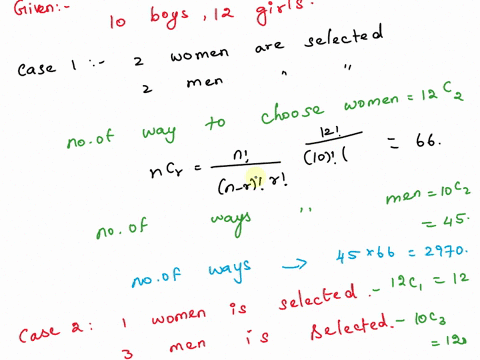 Given:- 10 boys, 12 girls.
Case 1:- 2 women are selected
2 men " "
no. of way to choose women = 12C2
nCr = n! / (n-r)! r! 12! / (10)! ( = 66.
no. of ways " men = 10C2
= 45.
no. of ways → 45 × 66 = 2970.
Case 2: 1 women is selected. - 12C1 = 12
3 men is selected. - 10C3
= 120